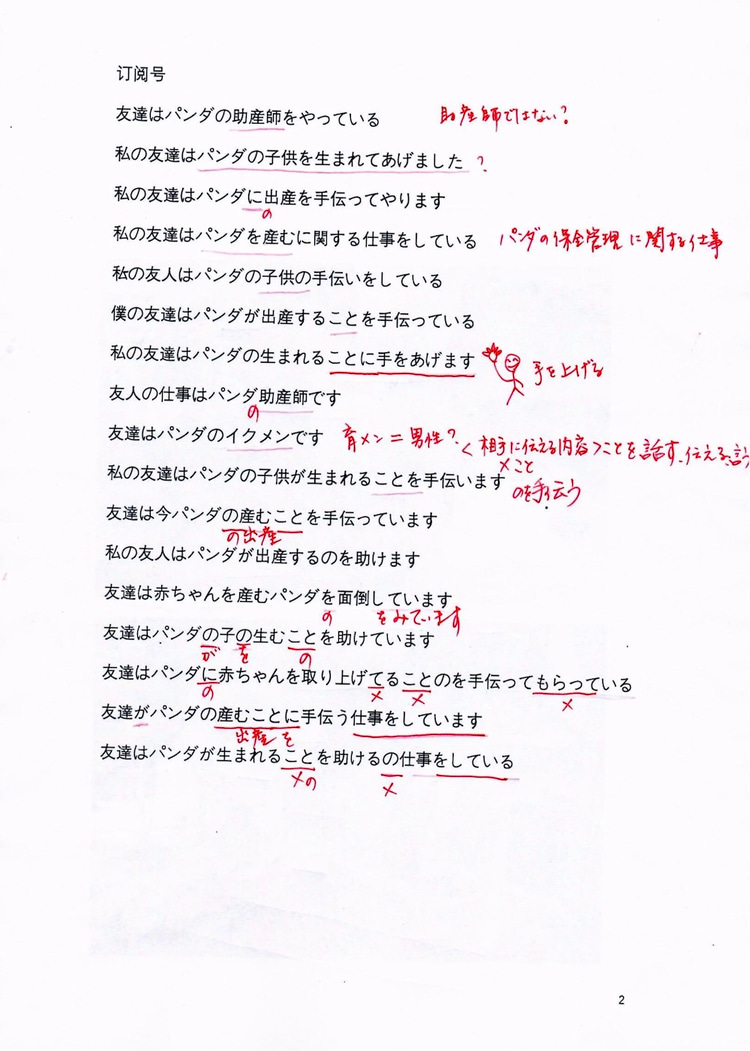 订阅号
友達はパンダの助産師をやっている 助産師ではない?
私の友達はパンダの子供を生まれてあげました ?
私の友達はパンダに出産を手伝ってやります
の
私の友達はパンダを産むに関する仕事をしている パンダの保全管理に関する仕事
私の友人はパンダの子供の手伝いをしている
僕の友達はパンダが出産することを手伝っている
私の友達はパンダの生まれることに手をあげます 手を上げる
友人の仕事はパンダ助産師です
の
友達はパンダのイクメンです 育メン=男性? <相手に伝える内容>ことを話す、伝える、言う
×こと
私の友達はパンダの子供が生まれることを手伝います のを手伝う
友達は今パンダの産むことを手伝っています
の出産
私の友人はパンダが出産するのを助けます
友達は赤ちゃんを産むパンダを面倒しています
の をみています
友達はパンダの子の生むことを助けています
が を の
友達はパンダに赤ちゃんを取り上げてることのを手伝ってもらっている
の × × ×
友達がパンダの産むことに手伝う仕事をしています
出産 を
友達はパンダが生まれることを助けるの仕事をしている
×の ×
2